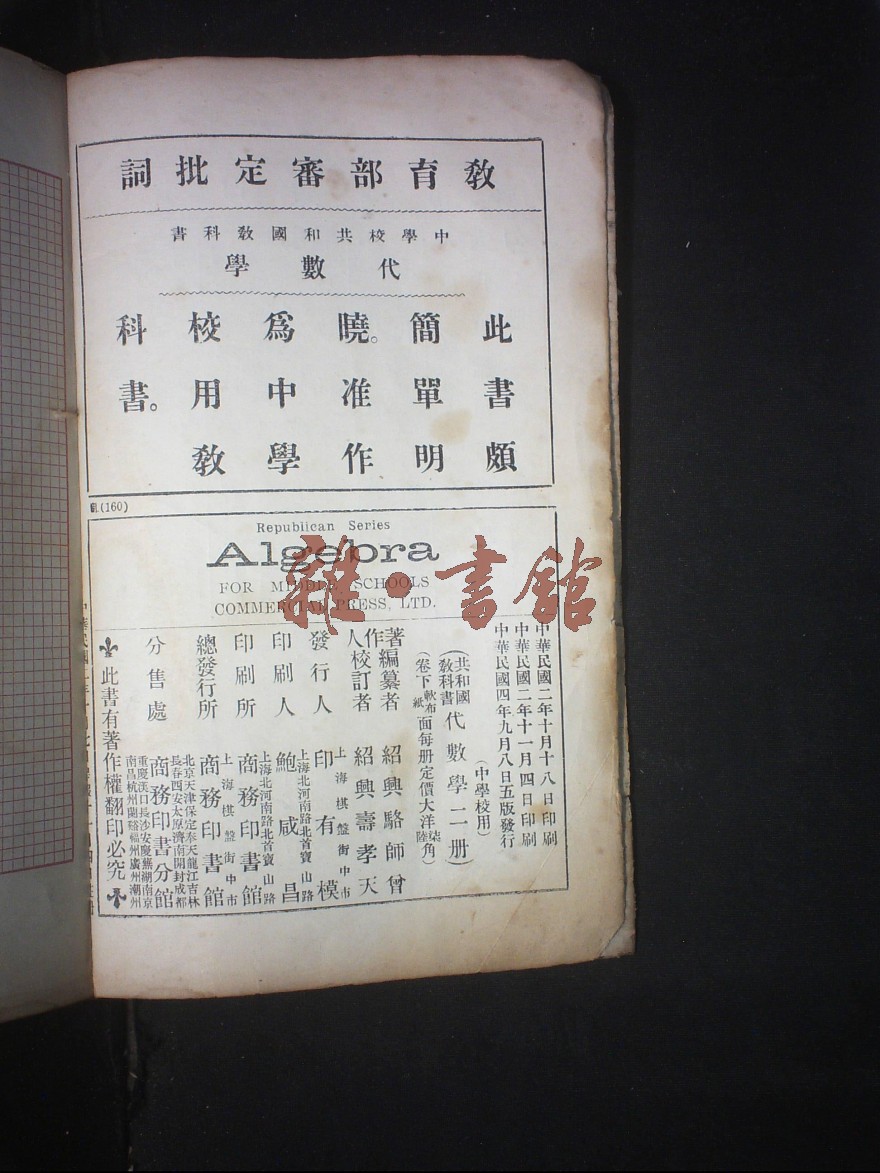 教育部審定批詞
中學校共和國教科書
代數學
此書頗
簡單明
曉。准作
爲中學
校用教
科書。
(160)
Republican Series
Algebra
FOR MIDDLE SCHOOLS
COMMERCIAL PRESS, LTD.
雜·書館
中華民國二年十月十八日印刷
中華民國二年十一月四日印刷
中華民國四年九月八日五版發行
(中學校用)
(共和國教科書代數學二册)
(卷下軟布紙面每册定價大洋柒陸角)
著作人 編纂者 紹興駱師曾
校訂者 紹興壽孝天
發行人 上海棋盤街中市 印有模
印刷人 上海北河南路北首寶山路 鮑咸昌
印刷所 上海北河南路北首寶山路 商務印書館
總發行所 上海棋盤街中市 商務印書館
分售處 北京天津保定奉天龍江吉林長春西安太原濟南開封成都
商務印書分館
重慶漢口長沙安慶蕪湖南京南昌杭州蘭谿福州廣州潮州
此書有著作權翻印必究